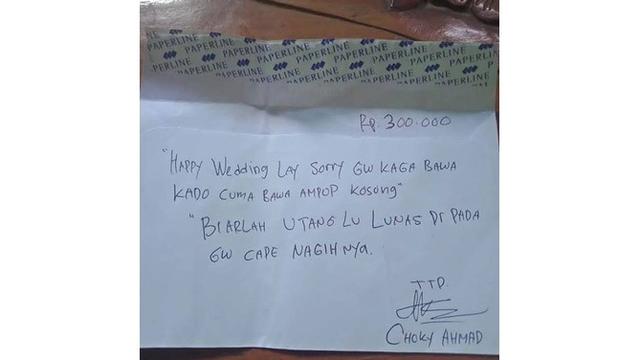 PAPERLINE PAPERLINE PAPERLINE PAPERLINE
PAPERLINE PAPERLINE PAPERLINE PAPERLINE
Rp. 300.000
"HAPPY Wedding LAY Sorry GW KAGA BAWA
KADO CUMA BAWA AMPOP KOSONG"
"BIARLAH UTANG LU LUNAS DI PADA
GW CAPE NAGIHNYA.
TTD.
CHOKY AHMAD